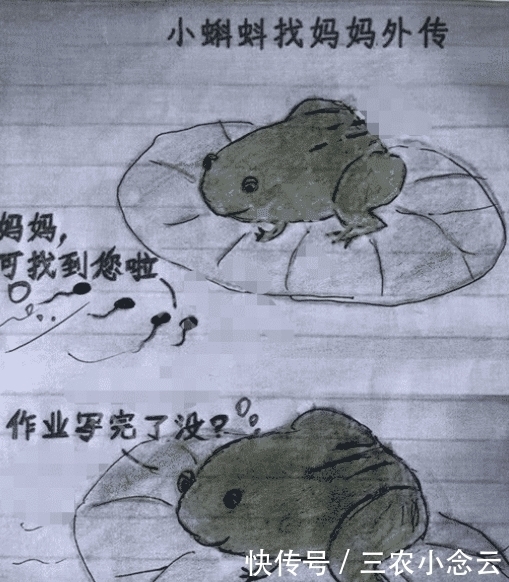 小蝌蚪找妈妈外传
妈妈,
可找到您啦
作业写完了没?
快传号 / 三农小念云